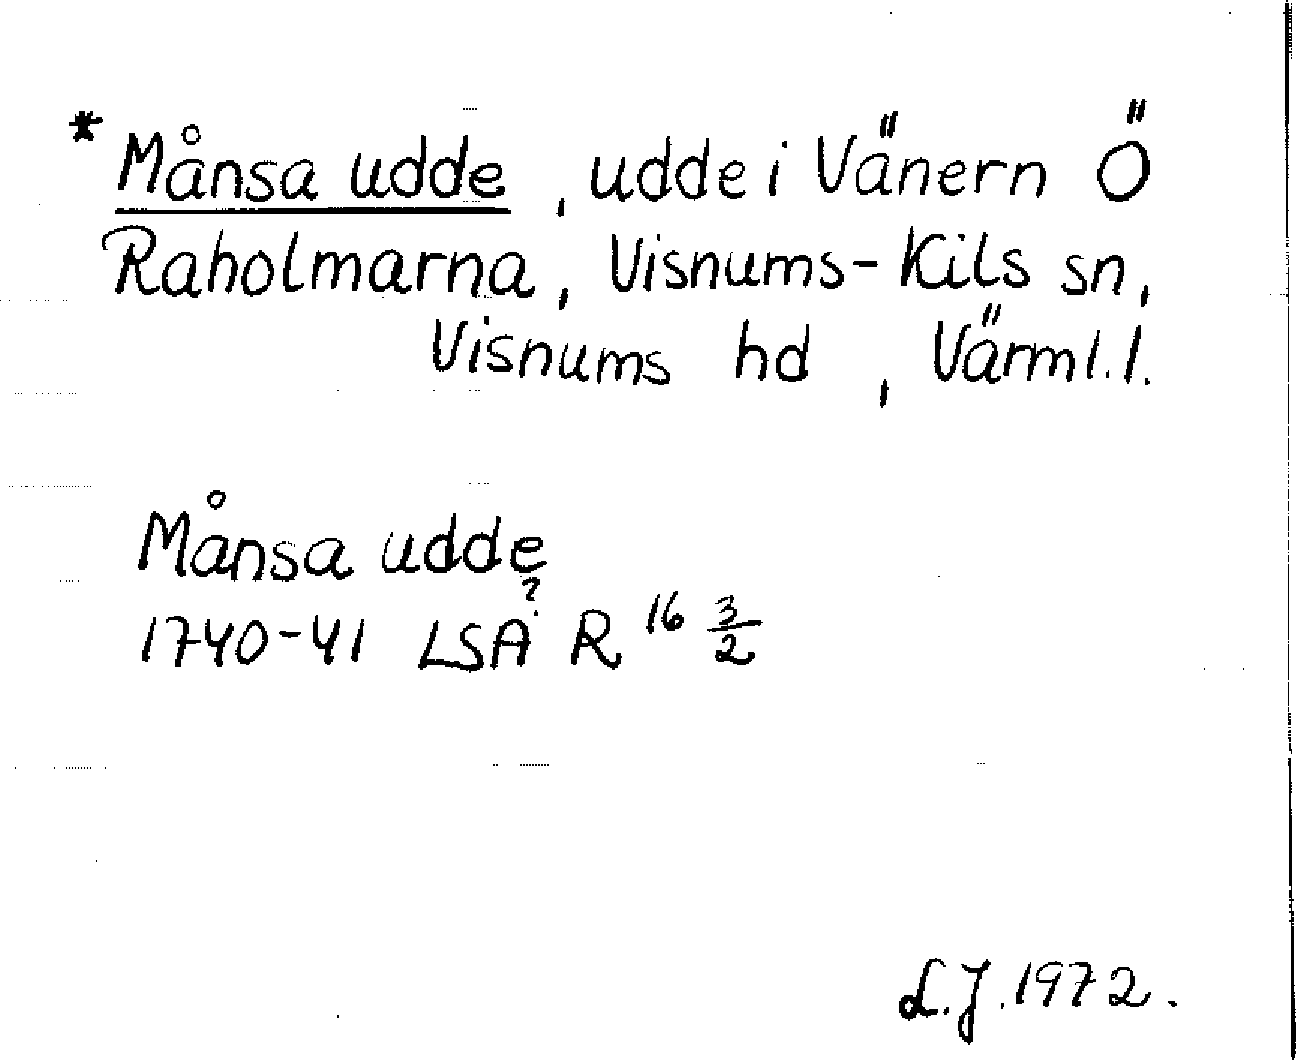 * Månsa udde, udde i Vänern Ö
Raholmarna, Visnums-Kils sn,
Visnums hd, Värml. l.
Månsa udde
1740-41 LSA? R 16 3/2
L.J. 1972.